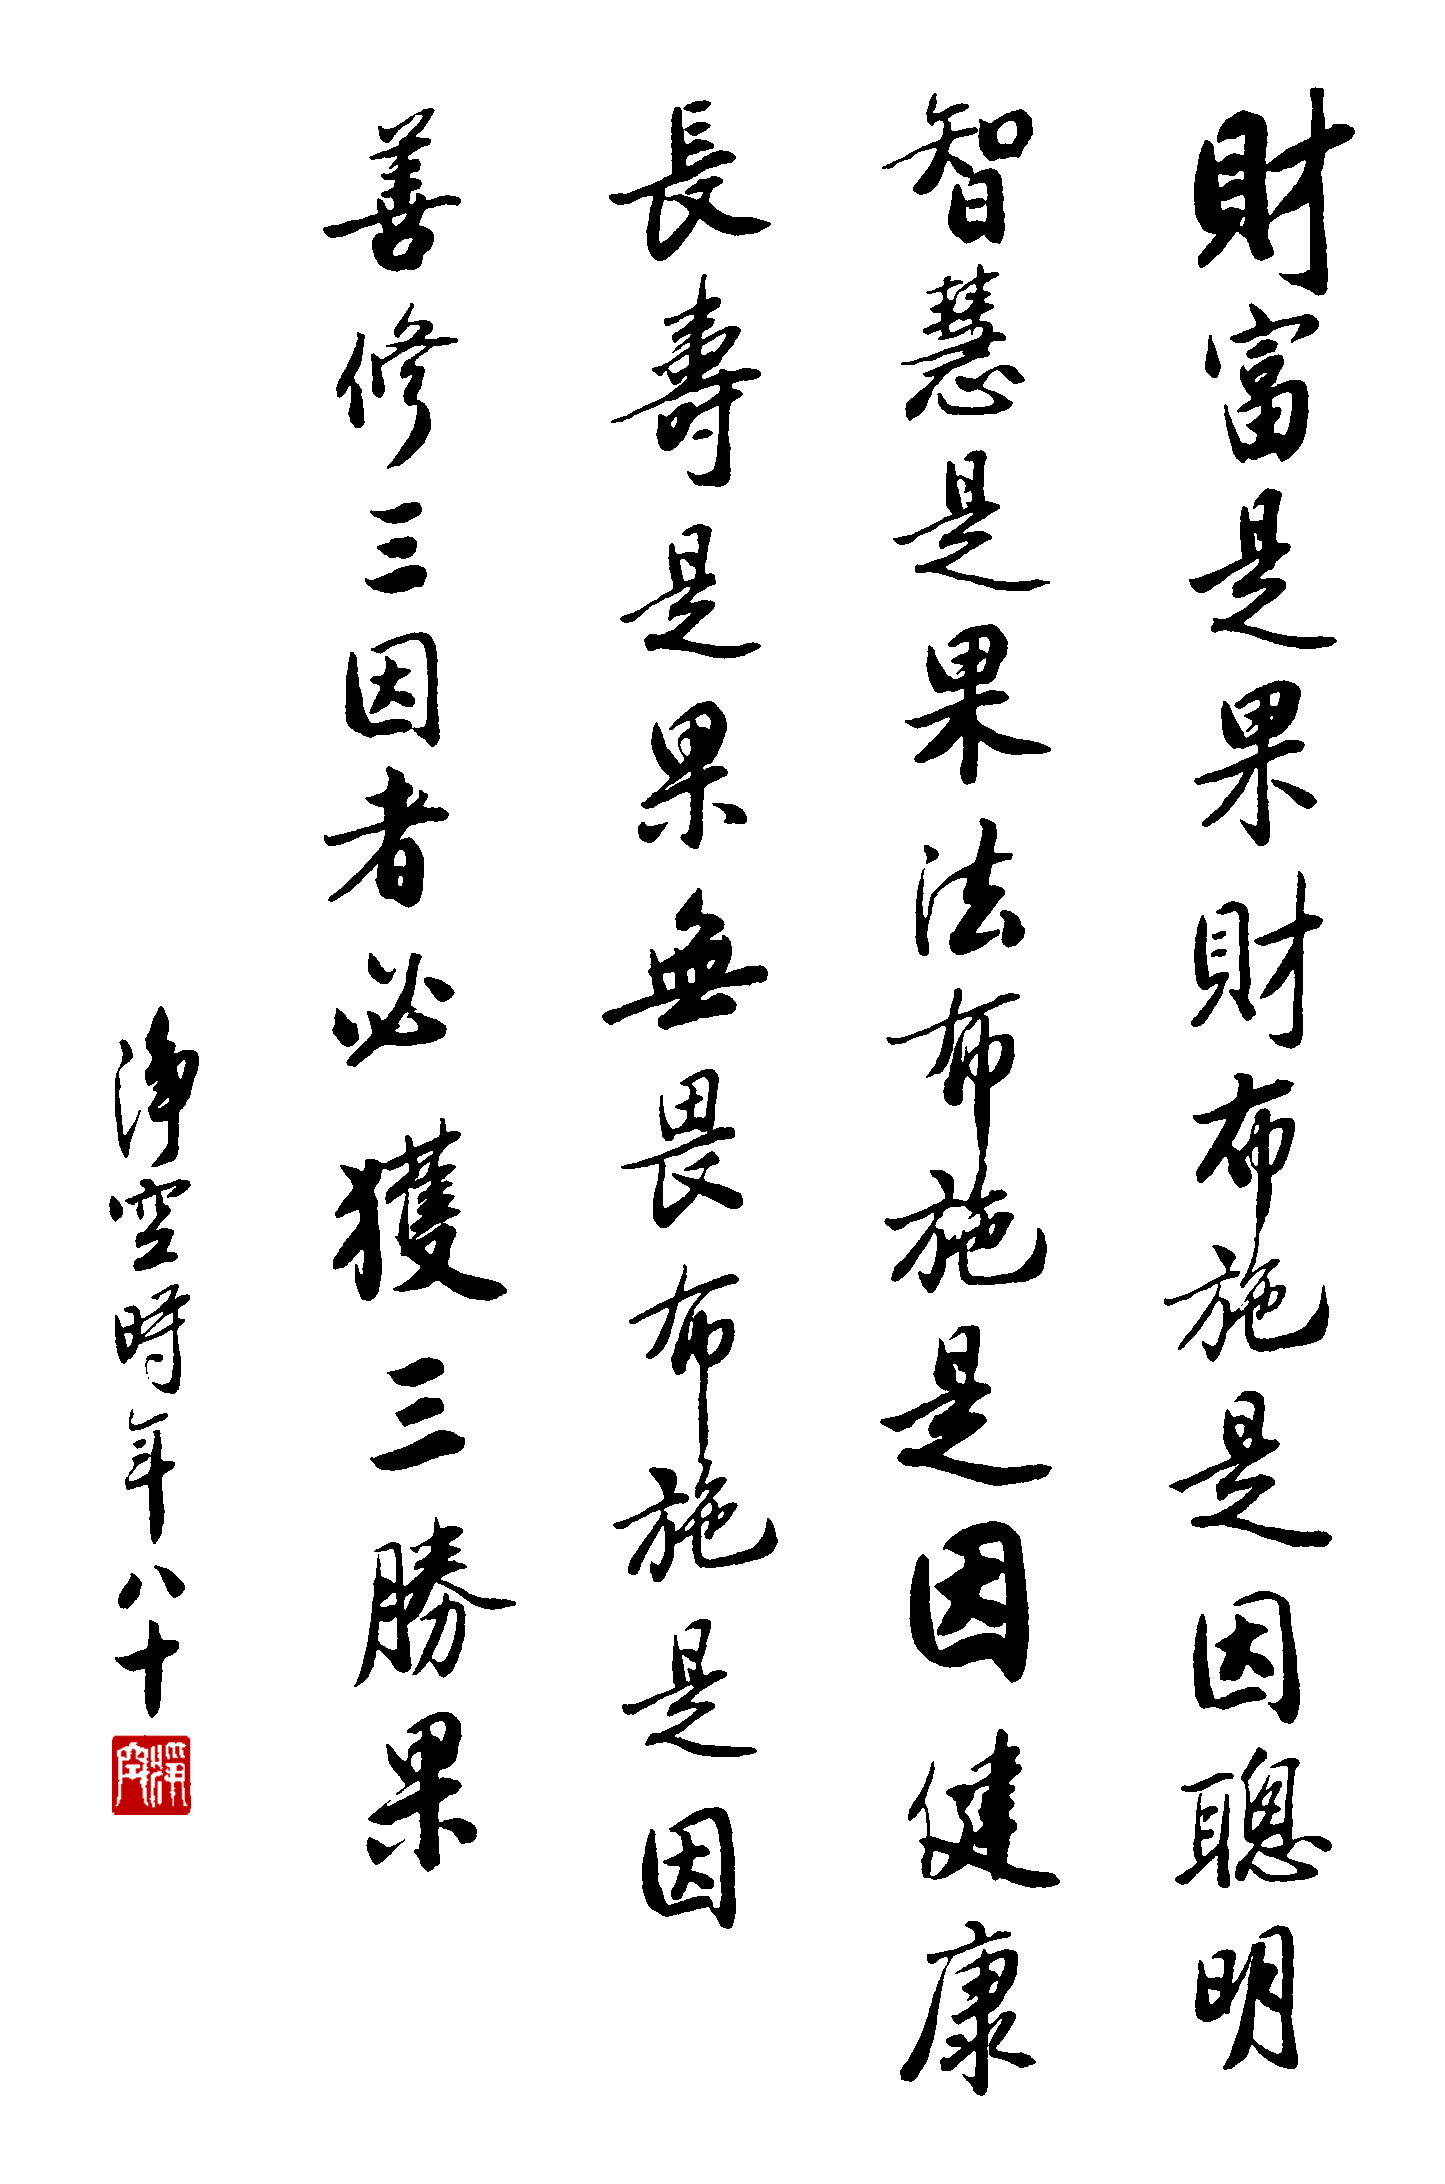 財富是果財布施是因聰明
智慧是果法布施是因健康
長壽是果無畏布施是因
善修三因者必獲三勝果
淨空時年八十
淨空